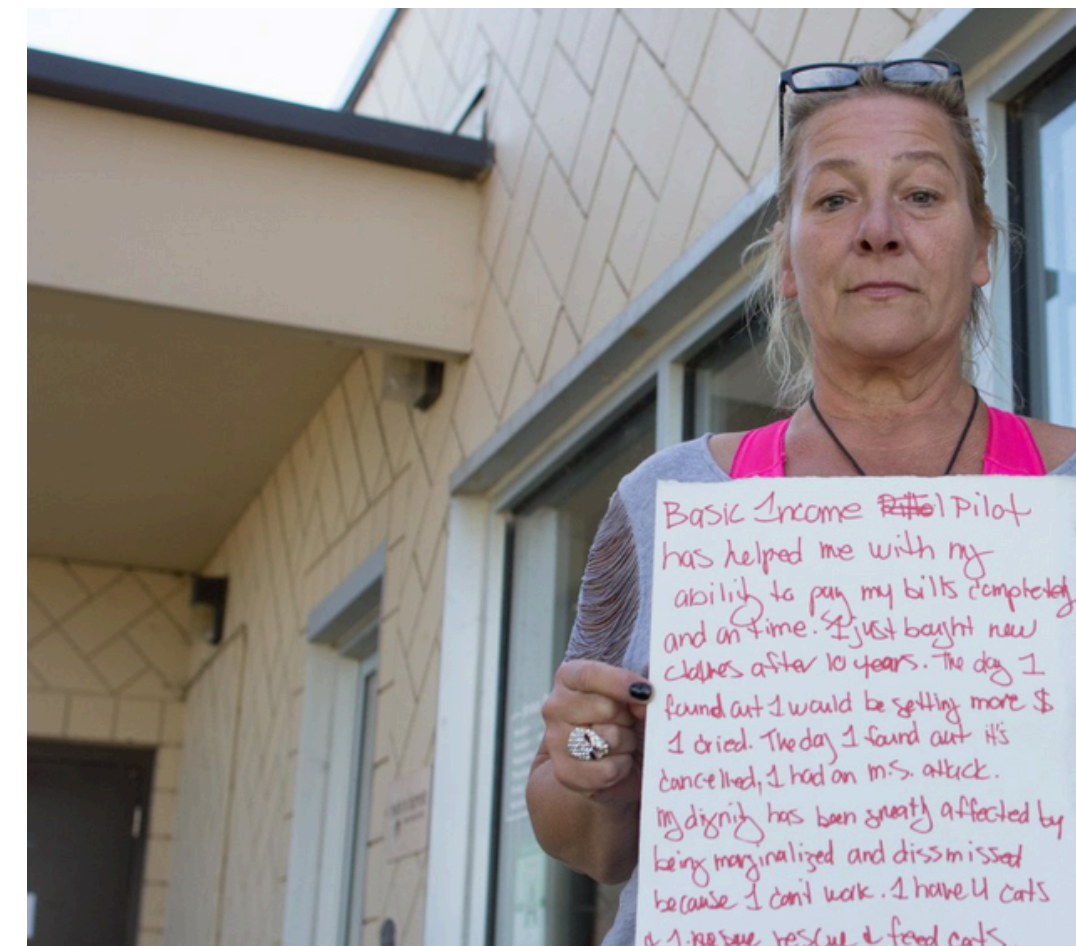 Basic Income Pilot
has helped me with my
ability to pay my bills completely
and on time. I just bought new
clothes after 10 years. The day I
found out I would be getting more $
I cried. The day I found out it's
cancelled, I had an M.S. attack.
My dignity has been greatly affected by
being marginalized and dissmissed
because I can't work. I have 4 cats
& I rescue & feed cats